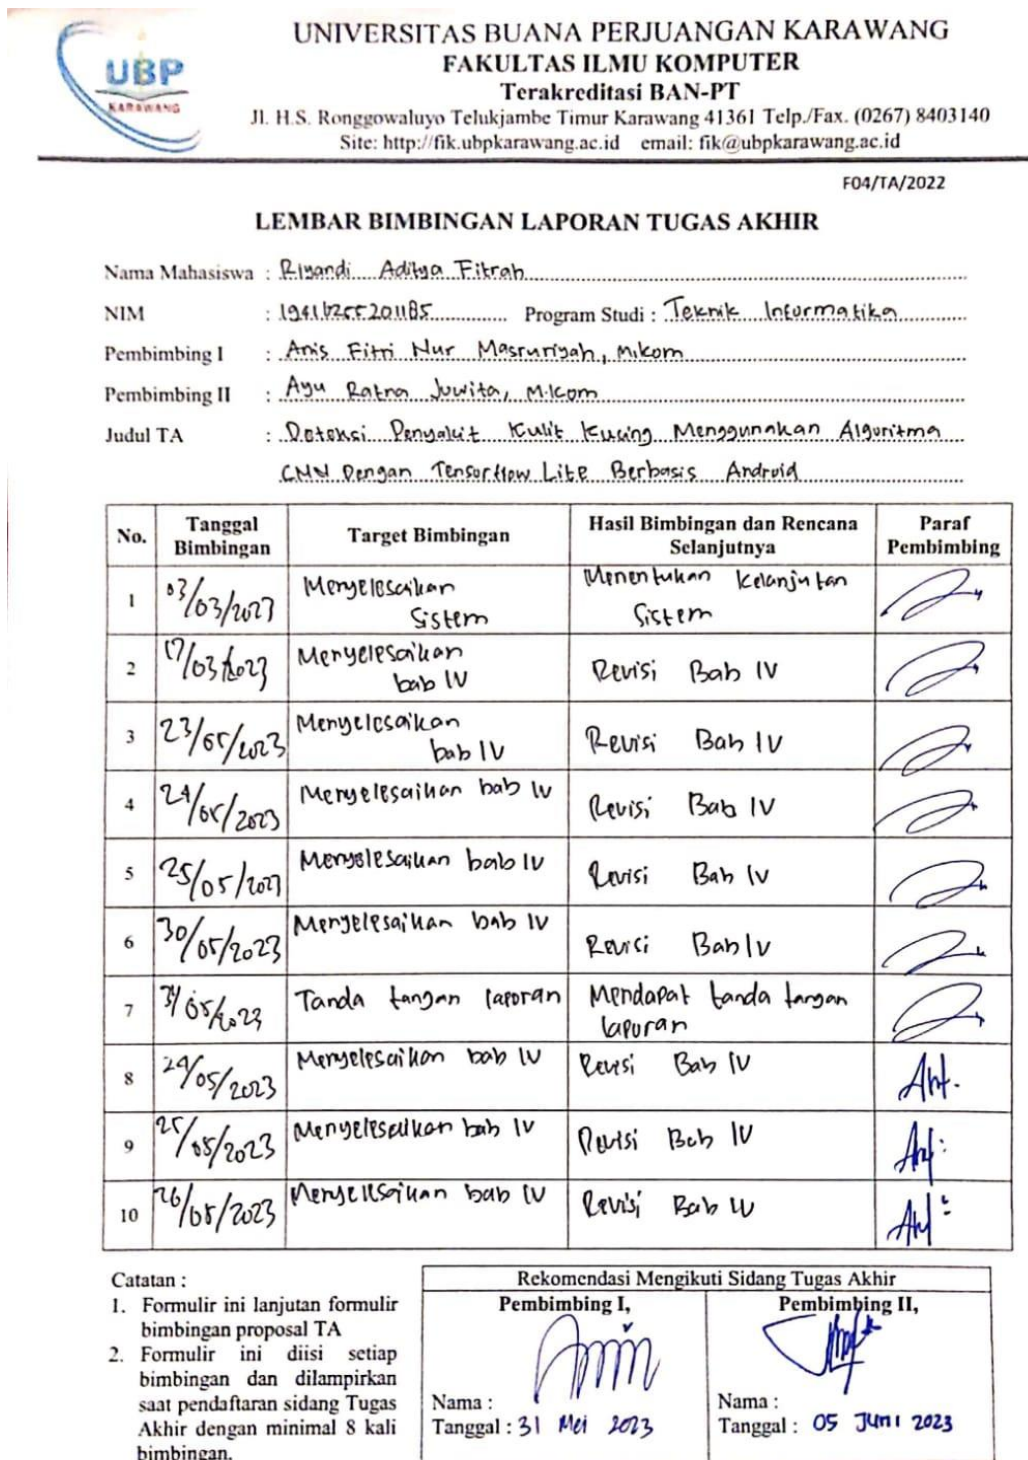 UBP
KARAWANG
UNIVERSITAS BUANA PERJUANGAN KARAWANG
FAKULTAS ILMU KOMPUTER
Terakreditasi BAN-PT
Jl. H.S. Ronggowaluyo Telukjambe Timur Karawang 41361 Telp./Fax. (0267) 8403140
Site: http://fik.ubpkarawang.ac.id email: fik@ubpkarawang.ac.id
F04/TA/2022
LEMBAR BIMBINGAN LAPORAN TUGAS AKHIR
Nama Mahasiswa : Riyandi Aditya Fitrah
NIM : 19416255201185 Program Studi : Teknik Informatika
Pembimbing I : Anis Fitri Nur Masruriyah, M.kom
Pembimbing II : Ayu Ratna Juwita, M.Kom
Judul TA : Deteksi Penyakit Kulit Kucing Menggunakan Algoritma
CNN Dengan Tensorflow Lite Berbasis Android
No. Tanggal Bimbingan Target Bimbingan Hasil Bimbingan dan Rencana Selanjutnya Paraf Pembimbing
1 03/03/2023 Menyelesaikan Sistem Menentukan Kelanjutan Sistem
2 17/03/2023 Menyelesaikan bab IV Revisi Bab IV
3 23/05/2023 Menyelesaikan bab IV Revisi Bab IV
4 24/05/2023 Menyelesaikan bab IV Revisi Bab IV
5 25/05/2023 Menyelesaikan bab IV Revisi Bab IV
6 30/05/2023 Menyelesaikan bab IV Revisi Bab IV
7 31/05/2023 Tanda tangan laporan Mendapat tanda tangan laporan
8 24/05/2023 Menyelesaikan bab IV Revisi Bab IV
9 25/05/2023 Menyelesaikan bab IV Revisi Bab IV
10 26/05/2023 Menyelesaikan bab IV Revisi Bab IV
Catatan :
1. Formulir ini lanjutan formulir
bimbingan proposal TA
2. Formulir ini diisi setiap
bimbingan dan dilampirkan
saat pendaftaran sidang Tugas
Akhir dengan minimal 8 kali
bimbingan.
Rekomendasi Mengikuti Sidang Tugas Akhir
Pembimbing I,
Nama :
Tanggal : 31 Mei 2023
Pembimbing II,
Nama :
Tanggal : 05 Juni 2023